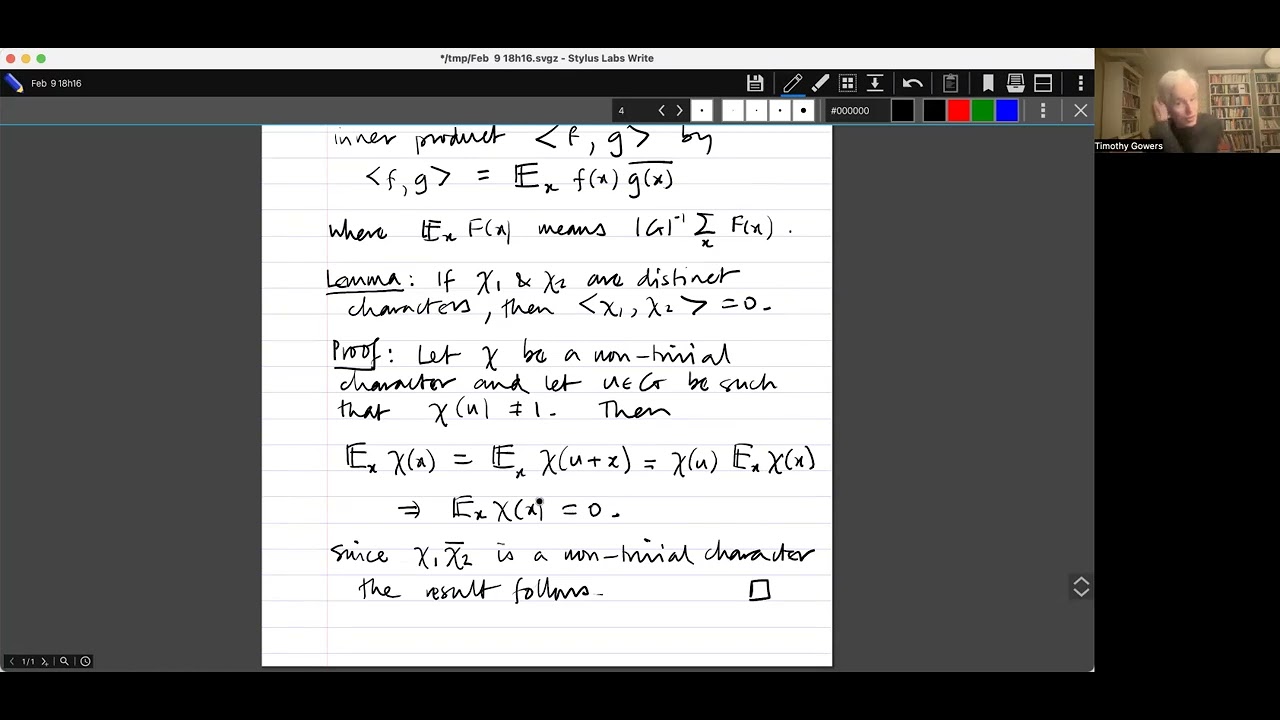 */tmp/Feb 9 18h16.svgz - Stylus Labs Write
Feb 9 18h16
4
#000000
Timothy Gowers
inner product <f, g> by
<f, g> = 𝔼ₓ f(x) \overline{g(x)}
where 𝔼ₓ F(x) means |G|⁻¹ Σₓ F(x).
Lemma: If χ₁ & χ₂ are distinct
characters, then <χ₁, χ₂> = 0.
Proof: Let χ be a non-trivial
character and let u∈G be such
that χ(u) ≠ 1. Then
𝔼ₓ χ(x) = 𝔼ₓ χ(u+x) = χ(u) 𝔼ₓ χ(x)
⇒ 𝔼ₓ χ(x) = 0.
Since χ₁ \overline{χ₂} is a non-trivial character
the result follows. □
1/1